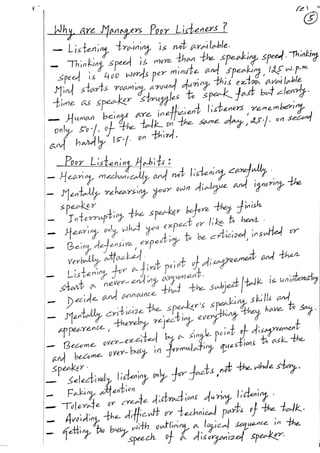 5
Why are Managers Poor Listeners?
— Listening training is not available.
— Thinking speed is more than the speaking speed. Thinking
speed is 400 words per minute and speaking, 125 w.p.m.
Mind starts roaming around during this extra available
time as speaker struggles to speak fast but clearly.
— Human beings are inefficient listeners remembering
only 50% of the talk on the same day, 25% on second
and hardly 15% on third.
Poor Listening Habits:
— Hearing mechanically and not listening carefully.
— Mentally rehearsing your own dialogue and ignoring the
speaker
— Interrupting the speaker before they finish
— Hearing only what you expect or like to hear.
— Being defensive, expecting to be criticized, insulted or
verbally attacked.
— Listening for a first point of disagreement and then
start a never-ending argument.
— Decide and announce that the subject/talk is uninteresting
— Mentally criticize the speaker's speaking skills and
appearence, thereby rejecting everything they have to say.
— Become over-excited by a single point of disagreement
and become over-busy in formulating questions to ask the
speaker.
— Selectively listening only for facts, not the whole story.
— Faking attention
— Tolerate or create distractions during listening.
— Avoiding the difficult or technical parts of the talk.
— Getting too busy with outlining a logical sequence in the
speech of a disorganized speaker.